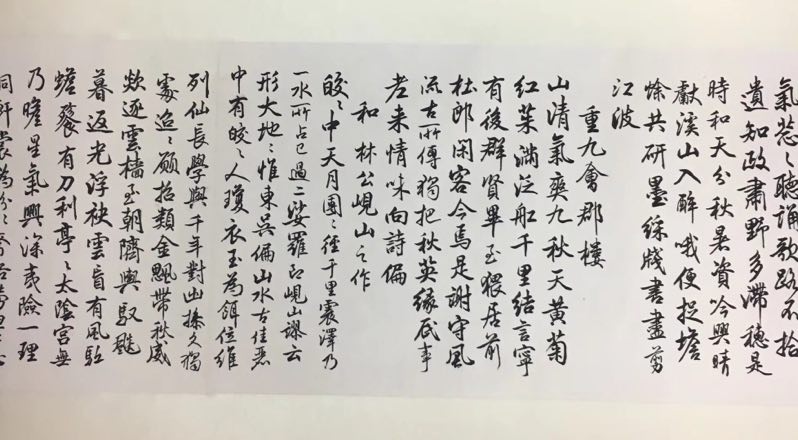 氣葱〻聽誦歌路不拾
遺知政肅野多滯穗是
時和天分秋暑資吟興晴
獻溪山入醉哦便捉蟾
蜍共研墨綵牋書盡剪
江波
重九會郡樓
山清氣爽九秋天黃菊
紅茱滿泛船千里結言寧
有後群賢畢至猥居前
杜郎閑客今焉是謝守風
流古所傳獨把秋英緣底事
老來情味向詩偏
和林公峴山之作
皎〻中天月團〻徑千里震澤乃
一水所占已過二娑羅即峴山謬云
形大地〻惟東吳偏山水古佳麗
中有皎〻人瓊衣玉為餌位維
列仙長學與千年對幽操久獨
處迢〻願招類金颷帶秋威
欻逐雲檣至朝隮輿馭飈
暮返光浮袂雲盲有風馭
蟾餮有刀利亭〻太陰宮無
乃瞻星氣興深夷險一理
洞軒裳為紛〻